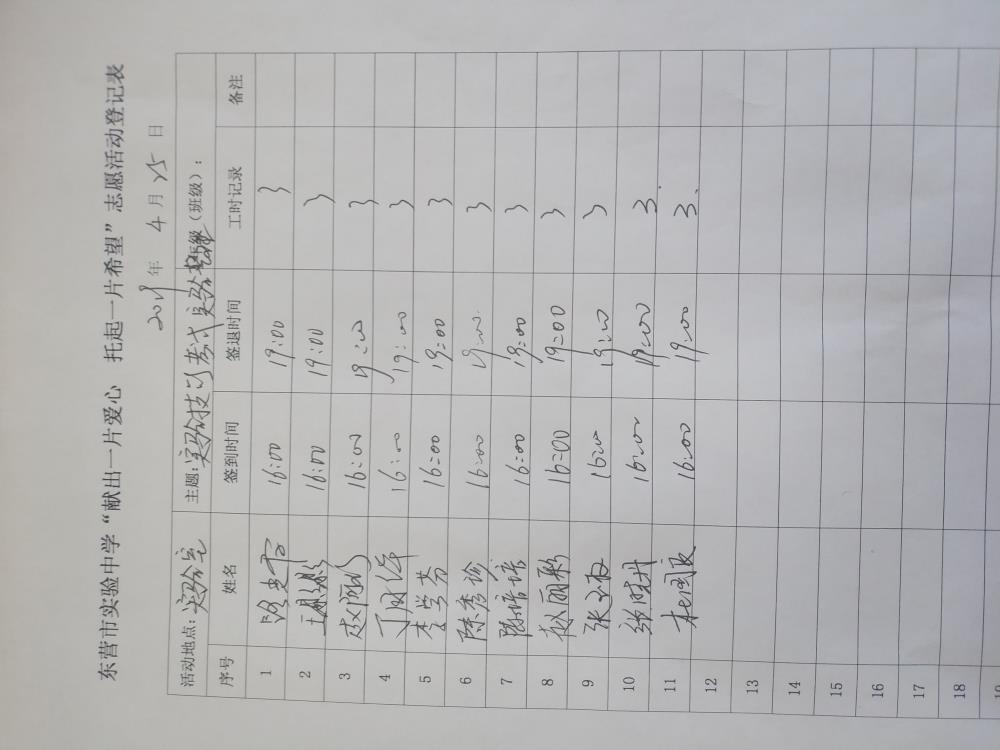 东营市实验中学“献出一片爱心 托起一片希望”志愿活动登记表
2019年 4月25日
活动地点:实验室 主题:实验技巧考试 级(班级):
序号 姓名 签到时间 签退时间 工时记录 备注
1 16:00 19:00 3
2 16:00 19:00 3
3 16:00 19:00 3
4 16:00 19:00 3
5 李学芬 16:00 19:00 3
6 陈秀珍 16:00 19:00 3
7 陈培培 16:00 19:00 3
8 赵丽彩 16:00 19:00 3
9 16:00 19:00 3
10 16:00 19:00 3.
11 杜国良 16:00 19:00 3.
12
13
14
15
16
17
18
19